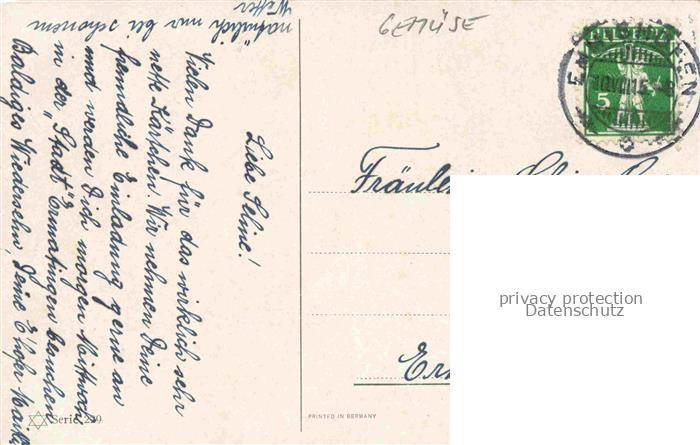 Liebe Seline!
Vielen Dank für das wirklich sehr
nette Kärtchen. Wir nehmen Deine
freundliche Einladung gerne an
und werden Dich morgen Mittwoch
in der "Stadt" Ermatingen besuchen
Baldiges Wiedersehn, Deine
nämlich nur bei schönem
Wetter
GEMÜSE
HELVETIA
5
EN
Fräulein
Er
privacy protection
Datenschutz
Serie 229
PRINTED IN GERMANY